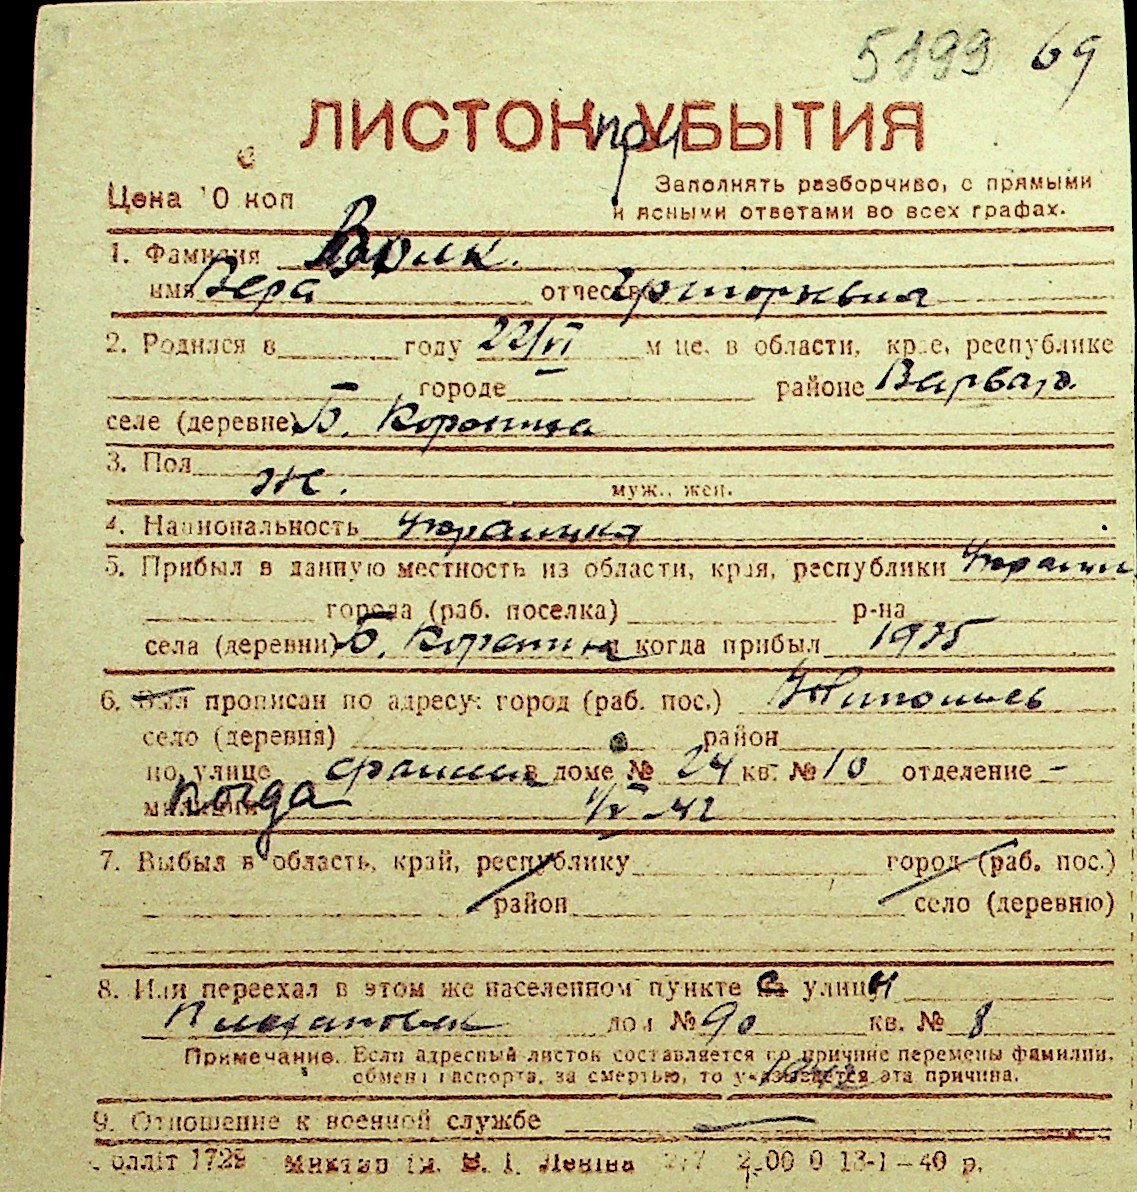 5199 69
ЛИСТОК при УБЫТИЯ
Цена 10 коп
Заполнять разборчиво, с прямыми
и ясными ответами во всех графах.
1. Фамилия Волк.
имя Вера отчество Григорьевна
2. Родился в году 22/VI м-це, в области, крае, республике
городе районе Варвар.
селе (деревне) Б. Коренина
3. Пол
Ж. муж., жен.
4. Национальность Украинка
5. Прибыл в данную местность из области, края, республики Украины
города (раб. поселка) р-на
села (деревни) Б. Коренина и когда прибыл 1935
6. Был прописан по адресу: город (раб. пос.)
село (деревня) район
по улице в доме № 24 кв. № 10 отделение -
милиции Когда 1/V-42
7. Выбыл в область, край, республику город (раб. пос.)
район село (деревню)
8. Или переехал в этом же населенном пункте с улицы
дом № 90 кв. № 8
Примечание. Если адресный листок составляется по причине перемены фамилии,
обмена паспорта, за смертью, то указывается эта причина.
9. Отношение к военной службе
оллiт 1729 iм. В. I. Ленiна 2.00 0 13-1-40 р.